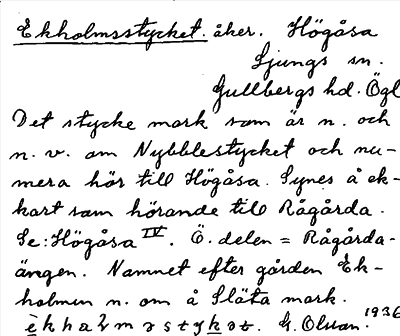 Ekholmsstycket. åker. Högåsa
Ljungs sn.
Gullbergs hd. Ögl
Det stycke mark som är n. och
n. v. om Nybblestycket och nu-
mera hör till Högåsa. Synes å ek-
kart som hörande till Rågårda.
Se: Högåsa IV. Ö. delen = Rågårda-
ängen. Namnet efter gården Ek-
holmen n. om å Släta mark.
1936